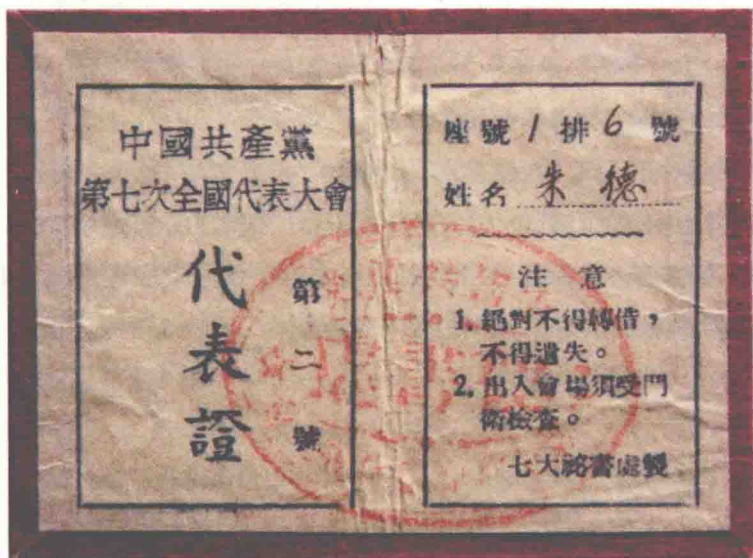 中國共產黨
第七次全國代表大會
代表證
第二號
座號 1 排 6 號
姓名 朱德
注意
1. 絕對不得轉借，
不得遺失。
2. 出入會場須受門
衛檢查。
七大祕書處製